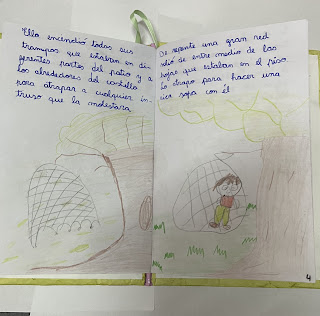 Ella encendió todas sus
trampas que estaban en di-
ferentes partes del patio y a
los alrededores del castillo
para atrapar a cualquier in-
truso que la molestara
De repente una gran red
salió de entre medio de las
hojas que estaban en el piso
Lo atrapo para hacer una
rica sopa con él
4